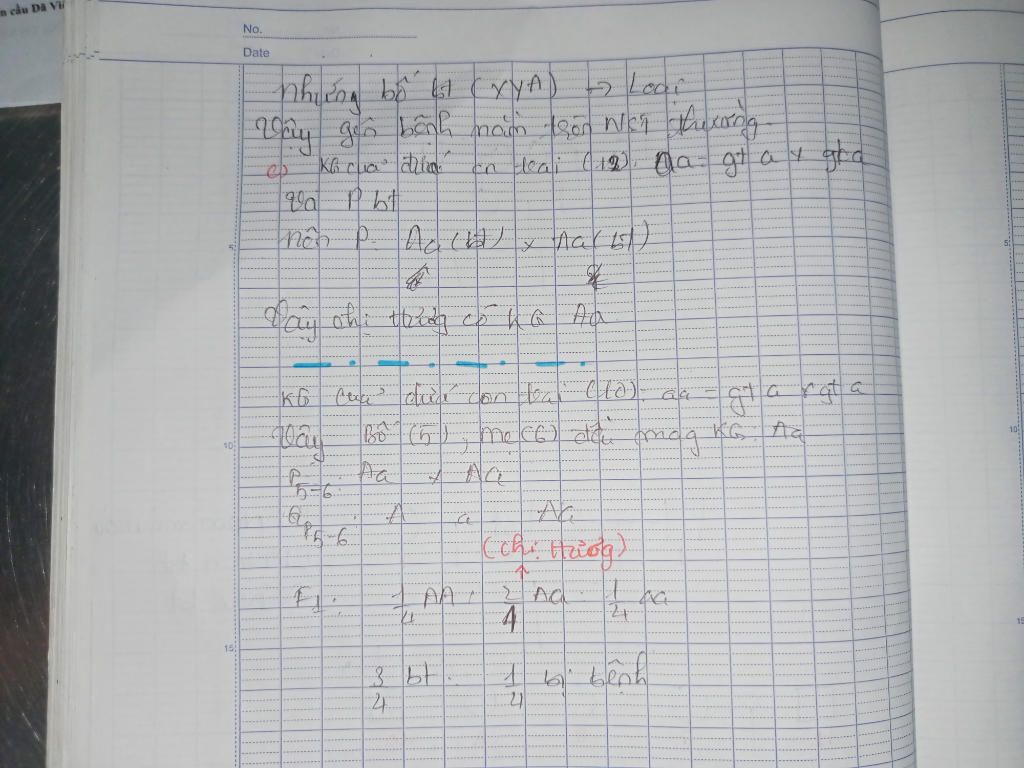 n cầu Dã Vi
No.
Date
Nhưng bố bt (XYA) → Loại
Vậy gen bệnh nằm trên NST thường
c) KG của đứa con trai (12): aa = gt a x gt a
Và P bt
nên P: Aa (bt) x Aa (bt)
5
Vậy chị Hương có KG Aa
KG của đứa con trai (10): aa = gt a x gt a
10
Vậy Bố (5), mẹ (6) đều mag KG: Aa
P5-6: Aa x Aa
GP5-6: A a Aa
(chị Hương)
F1: 1/4 AA : 2/4 Aa : 1/4 aa
15
3/4 bt : 1/4 bị bệnh